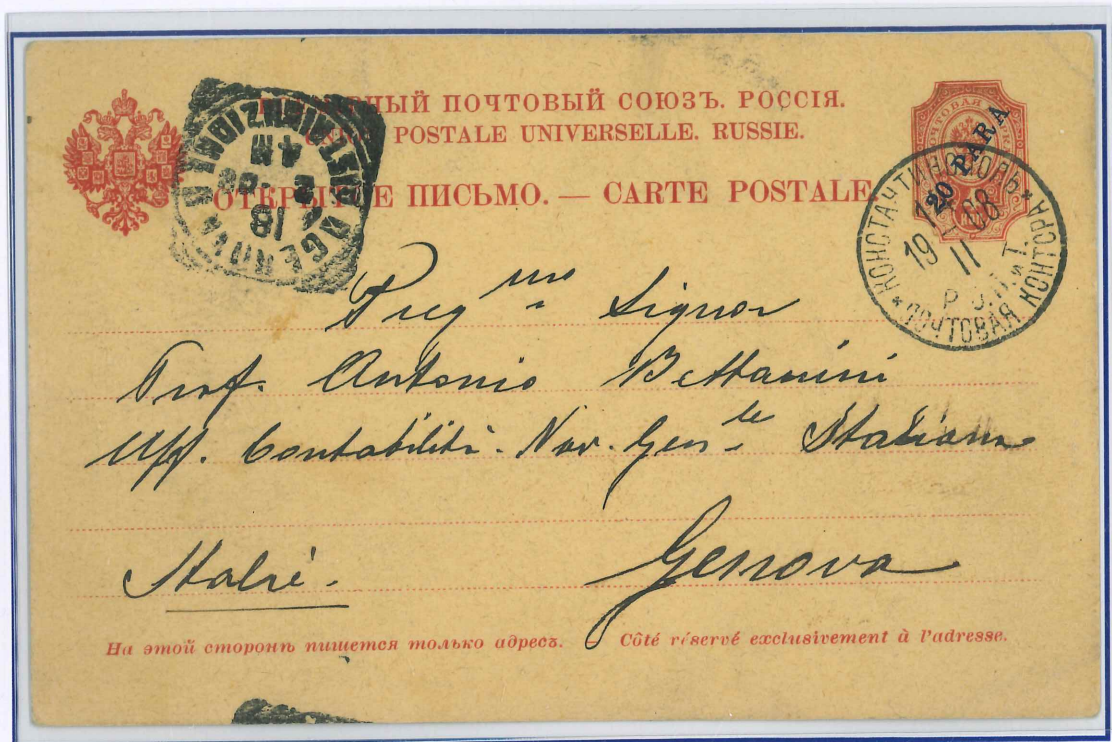 ВСЕМІРНЫЙ ПОЧТОВЫЙ СОЮЗЪ. РОССІЯ.
POSTALE UNIVERSELLE. RUSSIE.
ОТКРЫТОЕ ПИСЬМО. — CARTE POSTALE.
20 PARA
GENOVA
18
4M
КОНСТАНТИНОПОЛЬ
19 08
11
ПОЧТОВАЯ КОНТОРА
Preg mo Signor
Prof. Antonio Bettanini
Uff. Contabilità. Nav. Gen le Italiana
Genova
Italie.
На этой сторонѣ пишется только адресъ. — Côté réservé exclusivement à l'adresse.